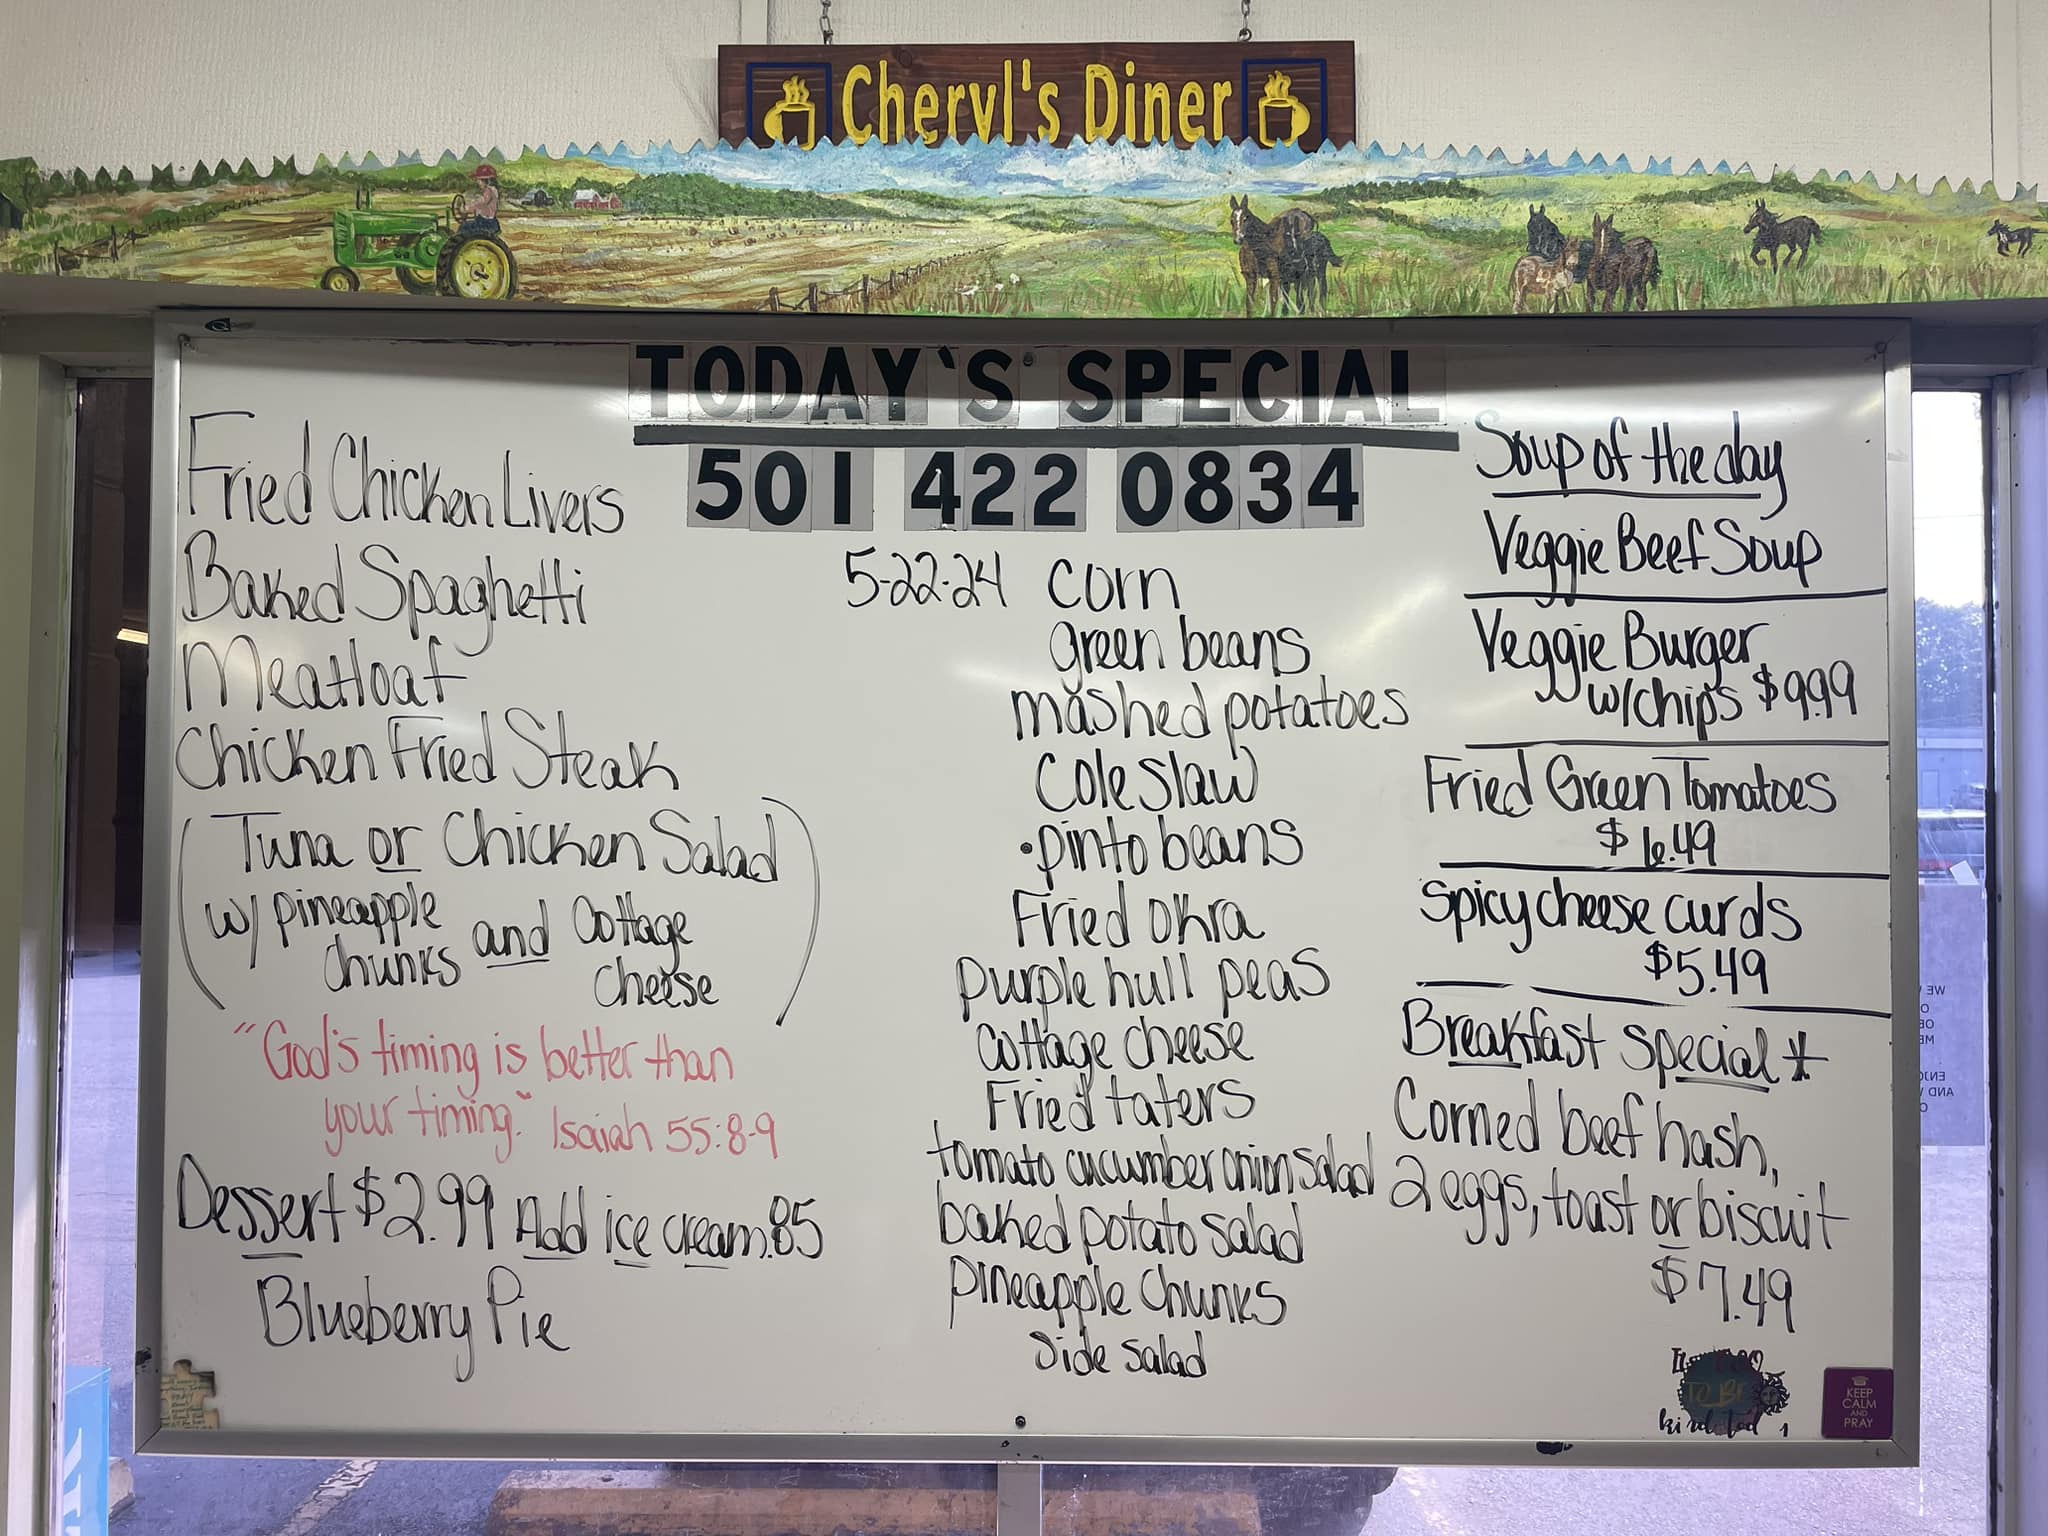 Cheryl's Diner
TODAY'S SPECIAL
501 422 0834
5-22-24
Fried Chicken Livers
Baked Spaghetti
Meatloaf
Chicken Fried Steak
(Tuna or Chicken Salad
w/ pineapple
chunks and Cottage
cheese)
"God's timing is better than
your timing." Isaiah 55:8-9
Dessert $2.99 Add ice cream .85
Blueberry Pie
corn
green beans
mashed potatoes
Cole slaw
•pinto beans
Fried okra
purple hull peas
cottage cheese
Fried taters
tomato cucumber onion salad
baked potato salad
pineapple chunks
side salad
Soup of the day
Veggie Beef Soup
Veggie Burger
w/chips $9.99
Fried Green Tomatoes
$6.49
Spicy cheese curds
$5.49
Breakfast special *
Corned beef hash,
2 eggs, toast or biscuit
$7.49
TO BE
KEEP
CALM
AND
PRAY